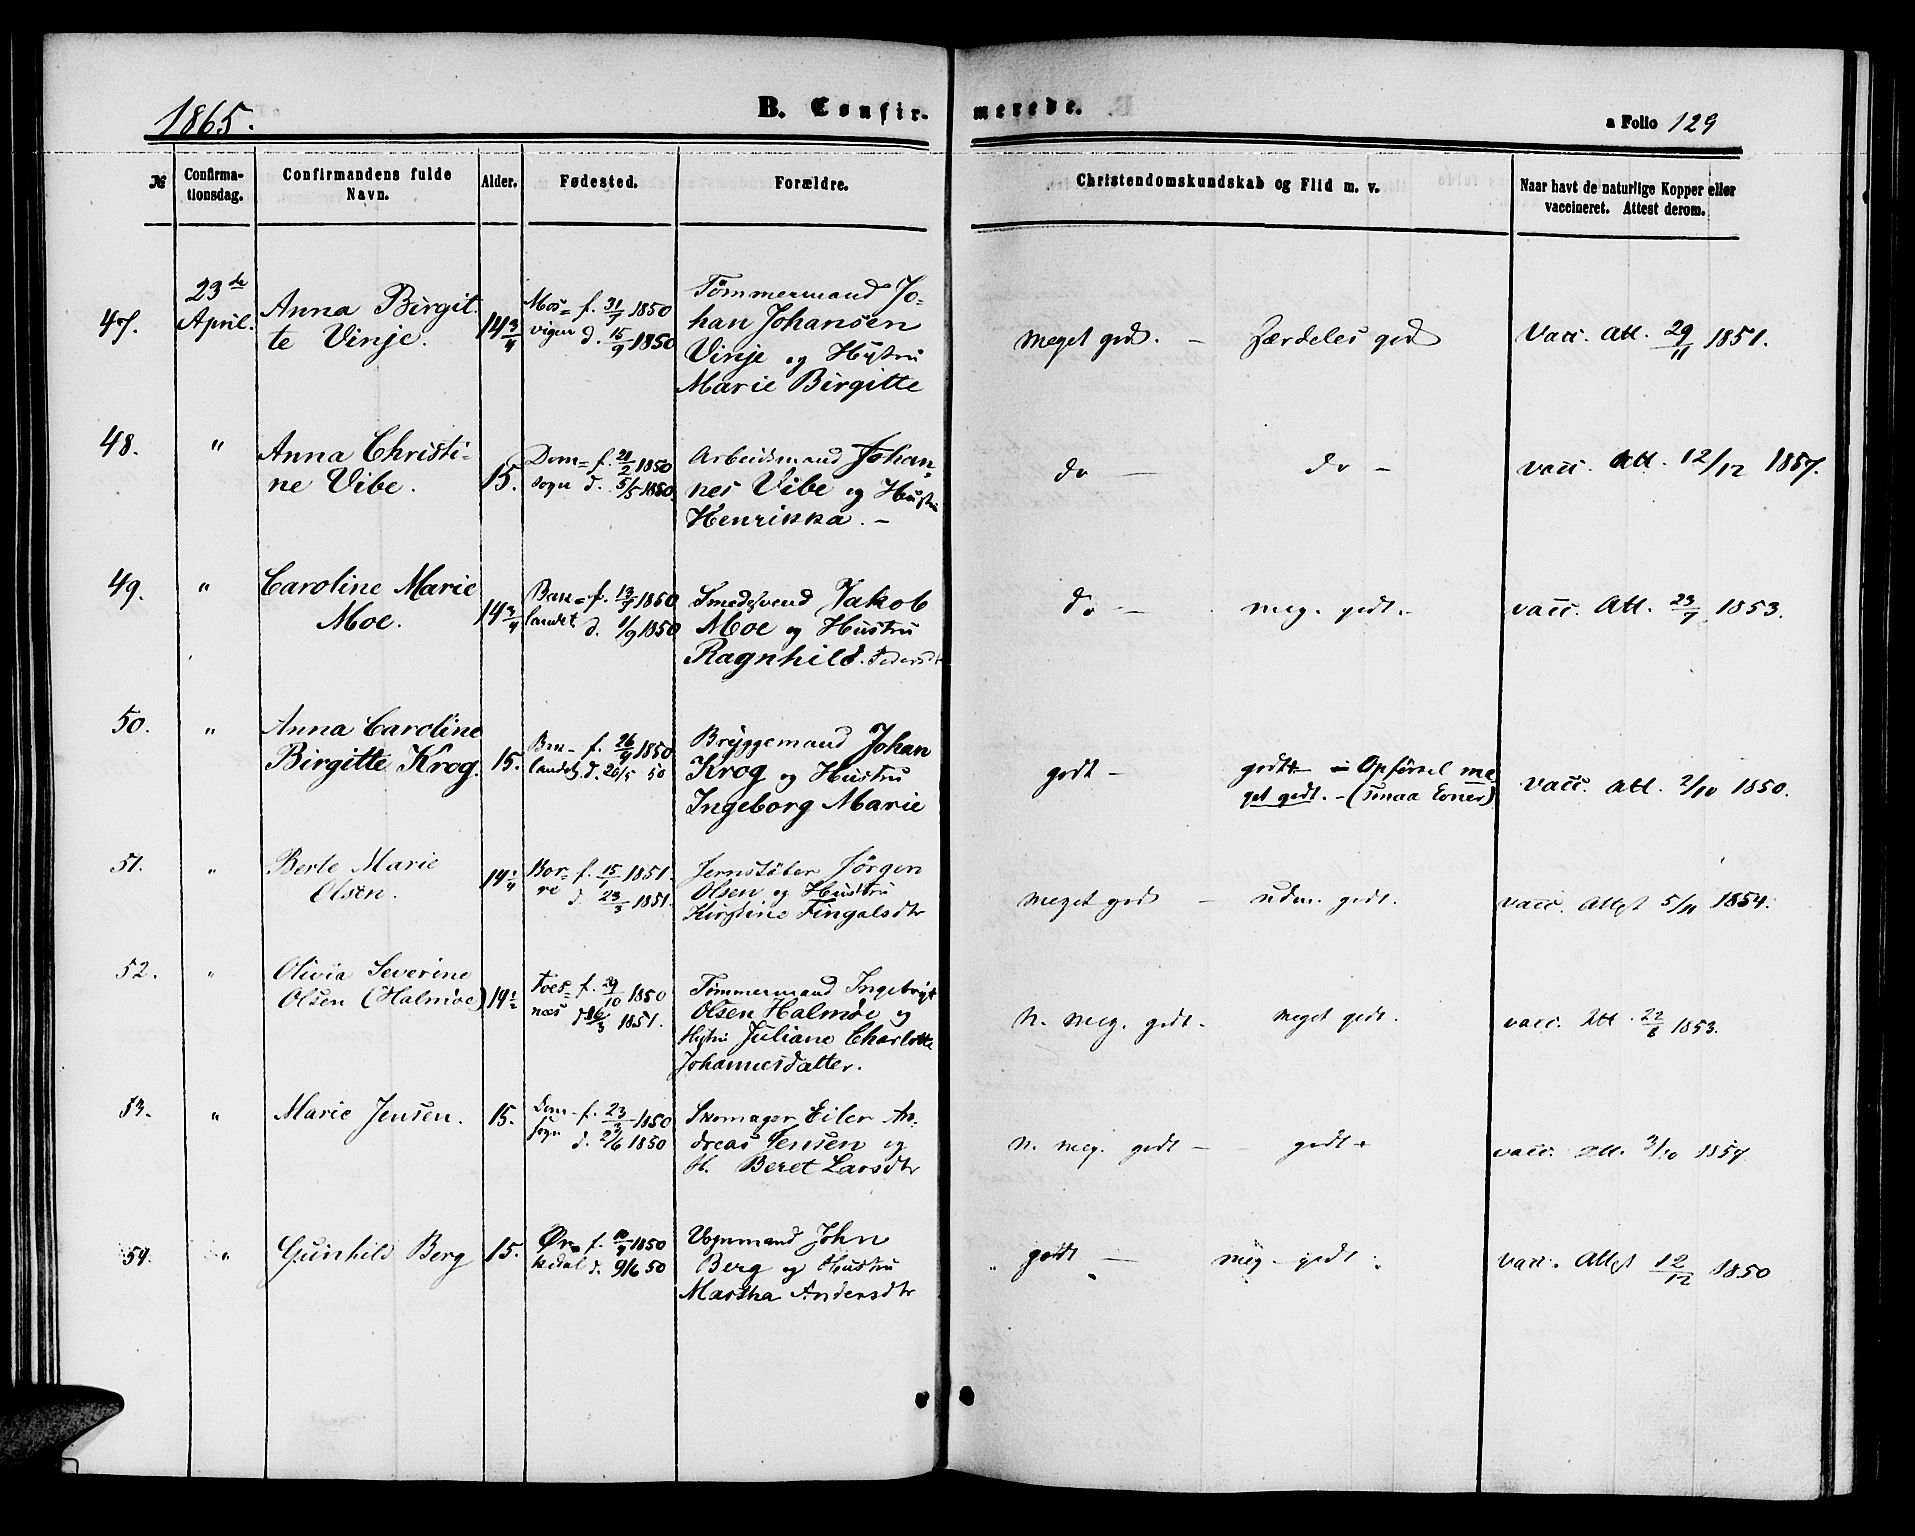 1865.
B. Confir-
merede.
a Folio 129
№
Confirma-
tionsdag.
Confirmandens fulde
Navn.
Alder.
Fødested.
Forældre.
Christendomskundskab og Flid m. v.
Naar havt de naturlige Kopper eller
vaccineret. Attest derom.
47.
23de
April.
Anna Birgit-
te Vinje.
14 3/4
Mos= f. 31/7 1850
vigen d. 15/9 1850
Tömmermand Jo-
han Johansen
Vinje og Hustru
Marie Birgitte
Meget god. - Særdeles god
Vacc. Att. 29/11 1851.
48.
"
Anna Christi-
ne Vibe.
15.
Dom= f. 21/2 1850
sogn d. 5/5 1850.
Arbeidsmand Johan-
nes Vibe og Hustru
Henrikka. -
do - do -
vacc. Att. 12/12 1857.
49.
"
Caroline Marie
Moe.
14 3/4
Bak= f. 13/7 1850
landet d. 1/9 1850
Smedsvend Jakob
Moe og Hustru
Ragnhild Pedersdt
do - meg. godt. -
vacc. Att. 23/7 1853.
50.
"
Anna Caroline
Birgitte Krog.
15.
landet d. 26/5 50
Bryggemand Johan
Krog og Hustru
Ingeborg Marie
godt - godt - Opførsel me-
get godt. - (smaa Evner)
vacc. Att. 2/10 1850.
51.
"
Berte Marie
Olsen.
14 1/4
Bor- f. 15/1 1851.
re d. 23/3 1851.
Jernstöber Jörgen
Olsen og Hustru
Kirstine Fingalsdtr
Meget god - udm. godt.
vacc. Attest 5/11 1854.
52.
"
Olivia Severine
Olsen (Halmöe)
14 1/2
Foes= f. 29/10 1850
næs d. 16/3 1851.
Tömmermand Ingebrigt
Olsen Halmöe og
Hustru Juliane Charlotte
Johannesdatter.
N. meg. godt. - meget godt.
vacc. Att. 22/6 1853.
53.
"
Marie Jensen.
15.
Dom- f. 23/3 1850
sogn d. 2/6 1850
Skomager Eiler An-
dreas Jensen og
H. Beret Larsdtr
N. meg. godt - godt +
vacc. Att. 3/10 1857
54.
"
Gunhild Berg
15.
Ør= f. 10/4 1850
kedal d. 9/6 50
Vognmand John
Berg og Hustru
Martha Andersdtr
godt - meg. godt.
vacc. Attest 12/12 1850